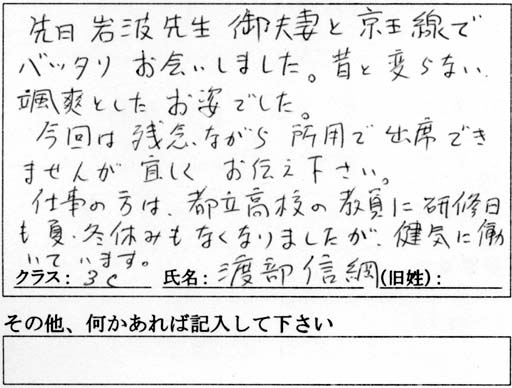 先日 岩波先生 御夫妻と 京王線で
バッタリ お会いしました。昔と変らない、
颯爽とした お姿でした。
今回は 残念ながら 所用で 出席でき
ませんが 宜しく お伝え下さい。
仕事の方は、都立高校の教員に研修日
も夏、冬休みもなくなりましたが、健気に働
いています。
クラス: 3C 氏名: 渡部信綱 (旧姓):
その他、何かあれば記入して下さい